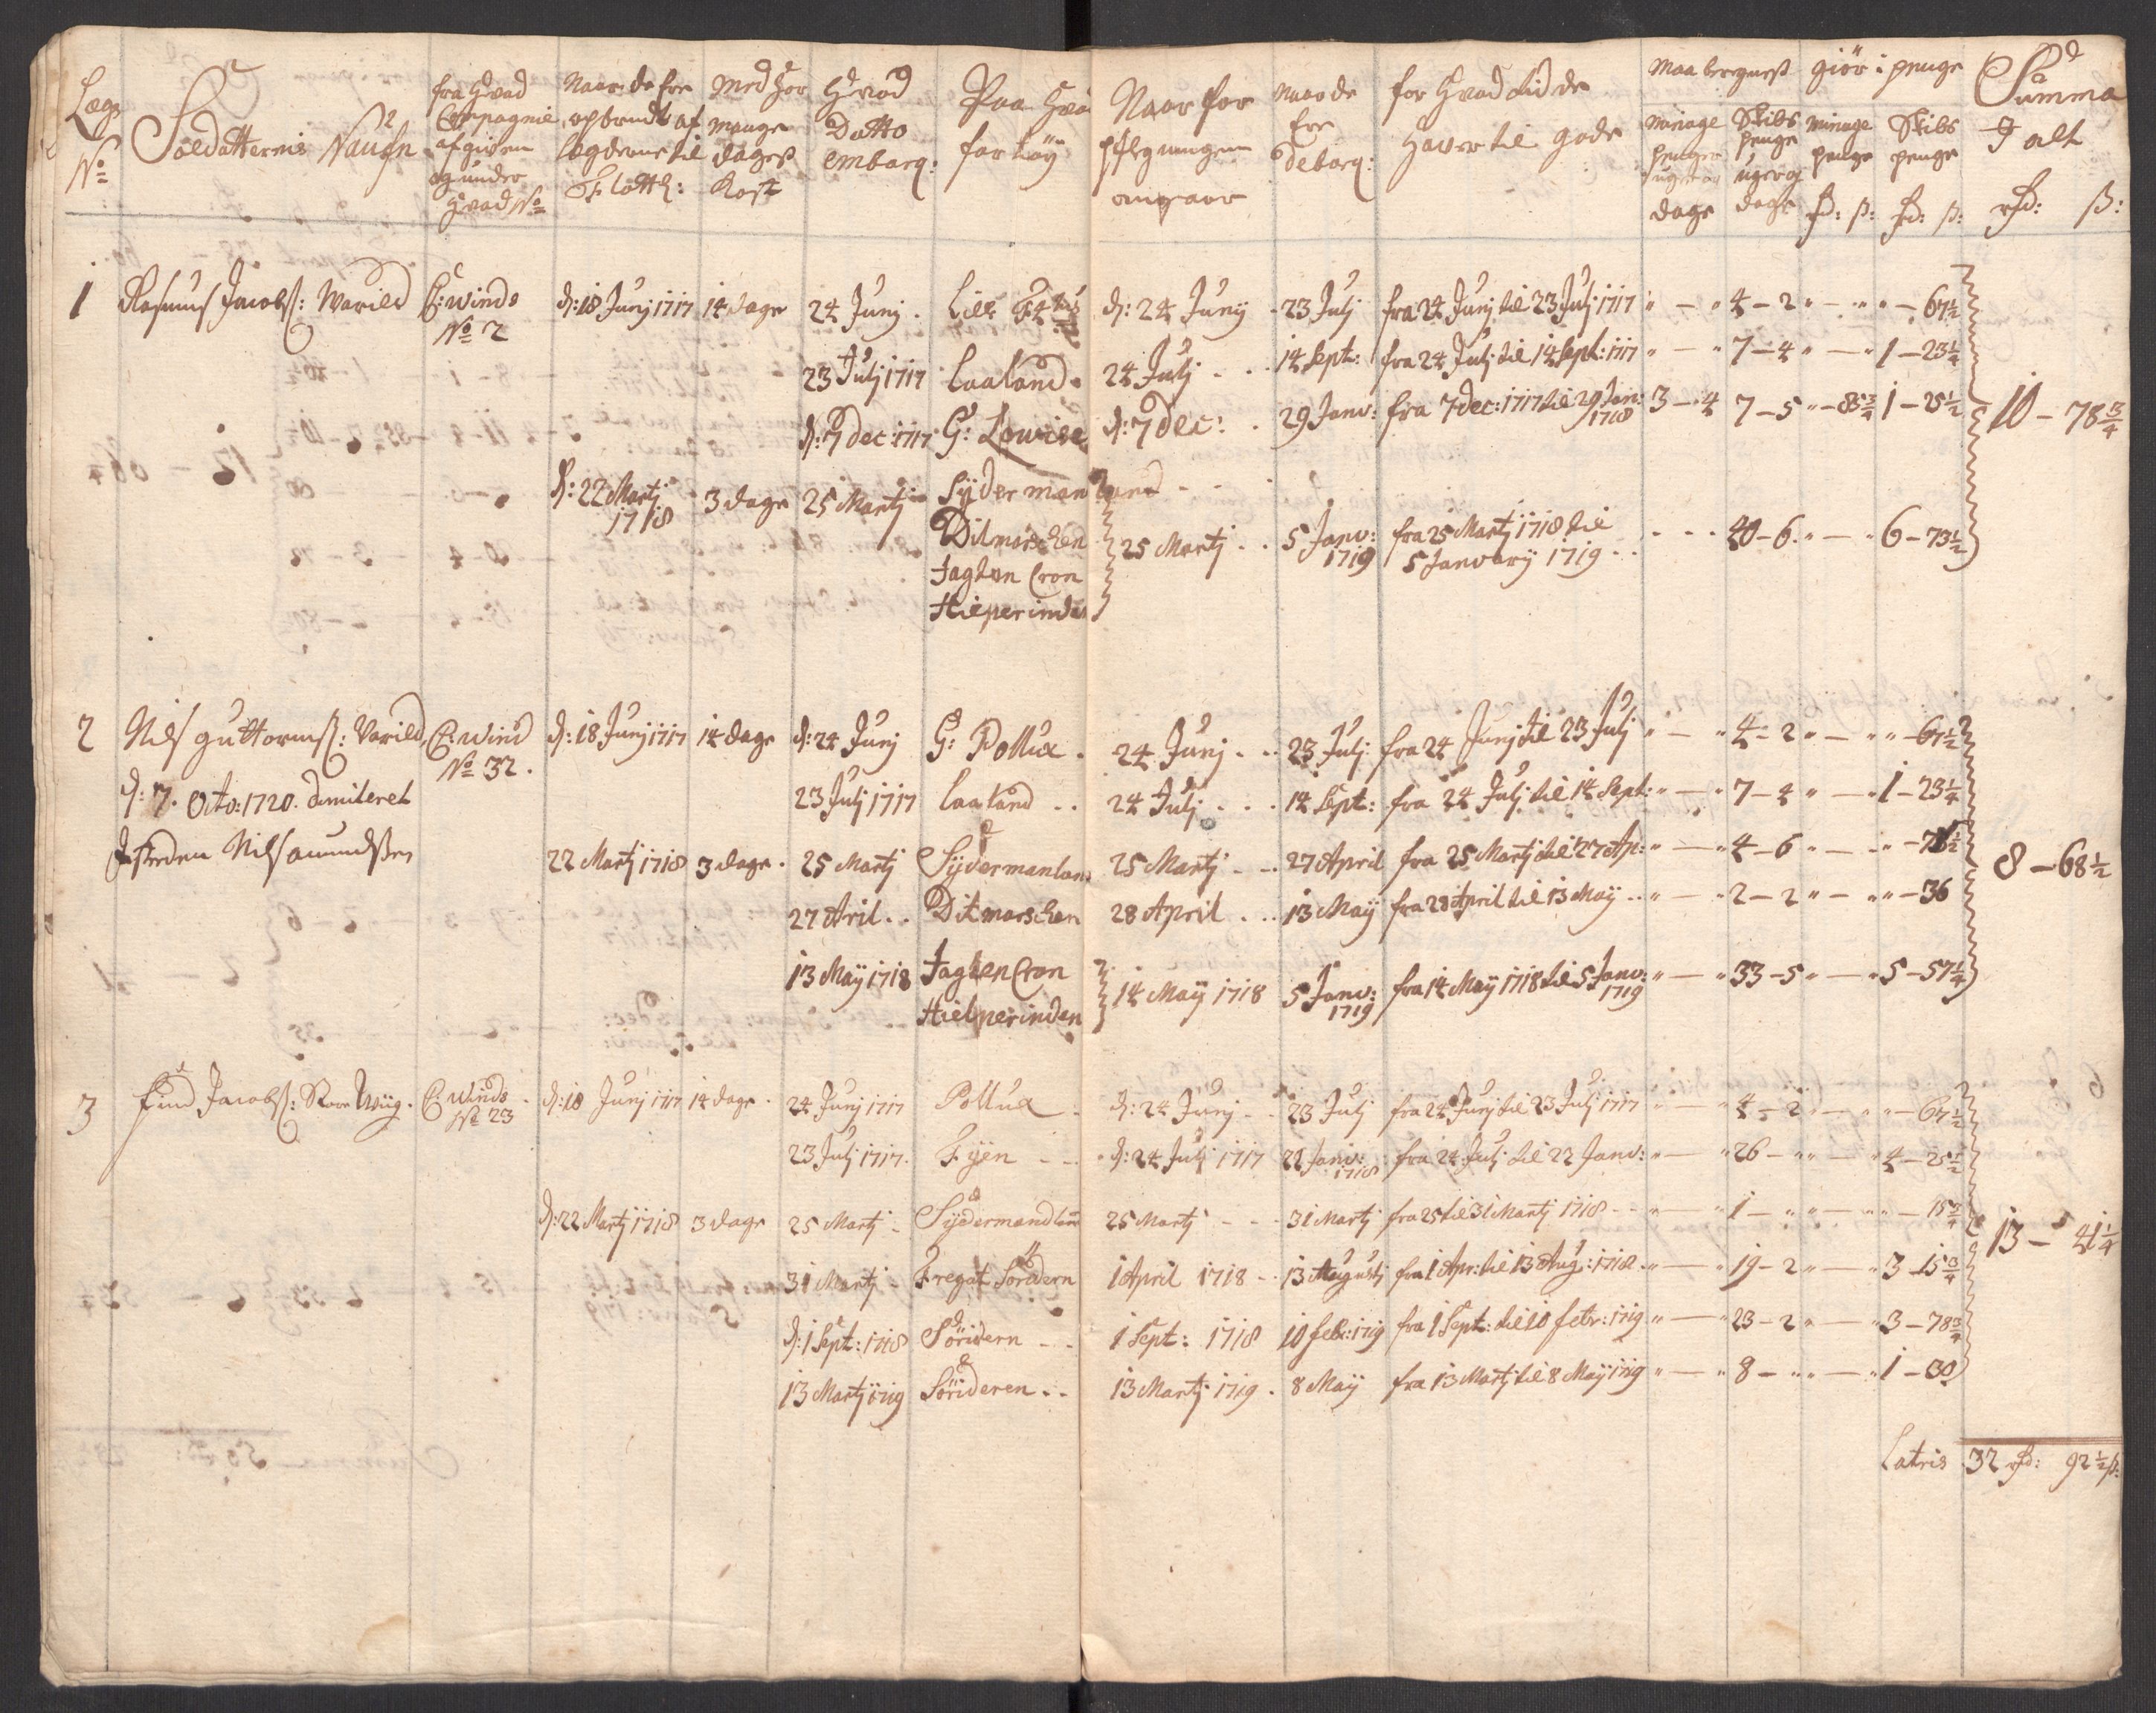 Legs No
Soldatternis Naufn
fra Hvad Compagnie afgifven og under hvad No
Naar de ere opbrudt af legderne til Flotten:
Med Hvor mange dages Kost
Hvad Datto embarq:
Paa Hvad fartöy
Naar forpflegningen angaar
Naar de Ere debarq:
for Hvad tid de Haver til gode
Maa beregnes
minage penger uger og dage
Skibs penge uger og dage
giör i penge
minage penge rd: ß:
Skibs penge rd: ß:
Summa I alt rd: ß:
1 Rasmus Jacobs: Warild C: Winds No 2 d: 18 Junj 1717 14 dage 24 Junj . Lille d: 24 Junij - 23 Julj fra 24 Junj til 23 Julj 1717 " — " 4 – 2 " — " " – 67½
23 Julj 1717 Laaland . 24 Julj - . . 14 Sept: fra 24 Julj til 14 Sept: 1717 " — " 7 – 4 " — " 1 – 23¼
d: 7 Dec: 1717 G: Lowise d: 7 Dec: . 29 Janv: fra 7 Dec: 1717 til 29 Jan: 1718 3 – 4 7 – 5 " – 85¾ 1 – 25½ 10 – 78¾
d: 22 Martj 1718 3 dage 25 Martj Sÿdermanland - - -
Ditmarschen 25 Martj . . 5 Janv: 1719 fra 25 Martj 1718 til 5 Januarij 1719 . . - - - 40 – 6 " — " 6 – 73½
Jagten Cron
Hielperinden
2 Nils guttorms: Varild C: Wind No 32 . d: 18 Junj 1717 14 dage d: 24 Junj G: Pollux . 24 Junj . . 23 Julj fra 24 Junj til 23 Julj " — " 4 – 2 " — " " – 67½
d: 7. Octo: 1720. dimiteret
23 Julj 1717 Laaland . . 24 Julj . . . 14 Sept: fra 24 Julj til 14 Sept: " — " 7 – 4 " — " 1 – 23¼
Nils amundsen
22 Martj 1718 3 dage . 25 Martj Sÿdermanland 25 Martj - . . 27 April fra 25 Martj til 27 Ap: " — " 4 – 6 " — " 8 – 68½
27 April . . Ditmarschen 28 April . . . 13 Maÿ fra 28 April til 13 Maÿ . . " — " 2 – 2 " — " " – 36
13 Maÿ 1718 Jagten Cron
Hielperinden 14 Maÿ 1718 5 Janv: 1719 fra 14 Maÿ 1718 til 5 Janv: 1719 " — " 33 – 5 " — " 5 – 57¼
3 Find Jacobs: C: Winds No 23 d: 18 Junj 1717 14 dage . 24 Junj 1717 Pollux . d: 24 Junj - . 23 Julj fra 24 Junj til 23 Julj 1717 " — " 4 – 2 " — " " – 67½
23 Julj 1717. Fÿen - - d: 24 Julj 1717 22 Janv: 1718 fra 24 Julj til 22 Janv: " — " 26 – " " — " 4 – 25½
d: 22 Martj 1718 3 dage 25 Martj - Sÿdermandland 25 Martj - - - 31 Martj fra 25 til 31 Martj 1718 - - " — " 1 – " " — " " – 15¾
31 Martj - Fregat Söridern 1 April 1718 - - 13 Augustj fra 1 Apr: til 13 Aug: 1718 . " — " 19 – 2 " — " 3 – 15¾ 13 – 41¼
d: 1 Sept: 1718 Söridern - - 1 Sept: 1718 10 febr: 1719 fra 1 Sept: til 10 febr: 1719 " — " 23 – 2 " — " 3 – 78¾
13 Martj 1719 Sörideren . . 13 Martj 1719 . 8 Maÿ fra 13 Martj til 8 Maÿ 1719 " — " 8 – " " — " 1 – 30
Latris 32 rd: 92½ ß: